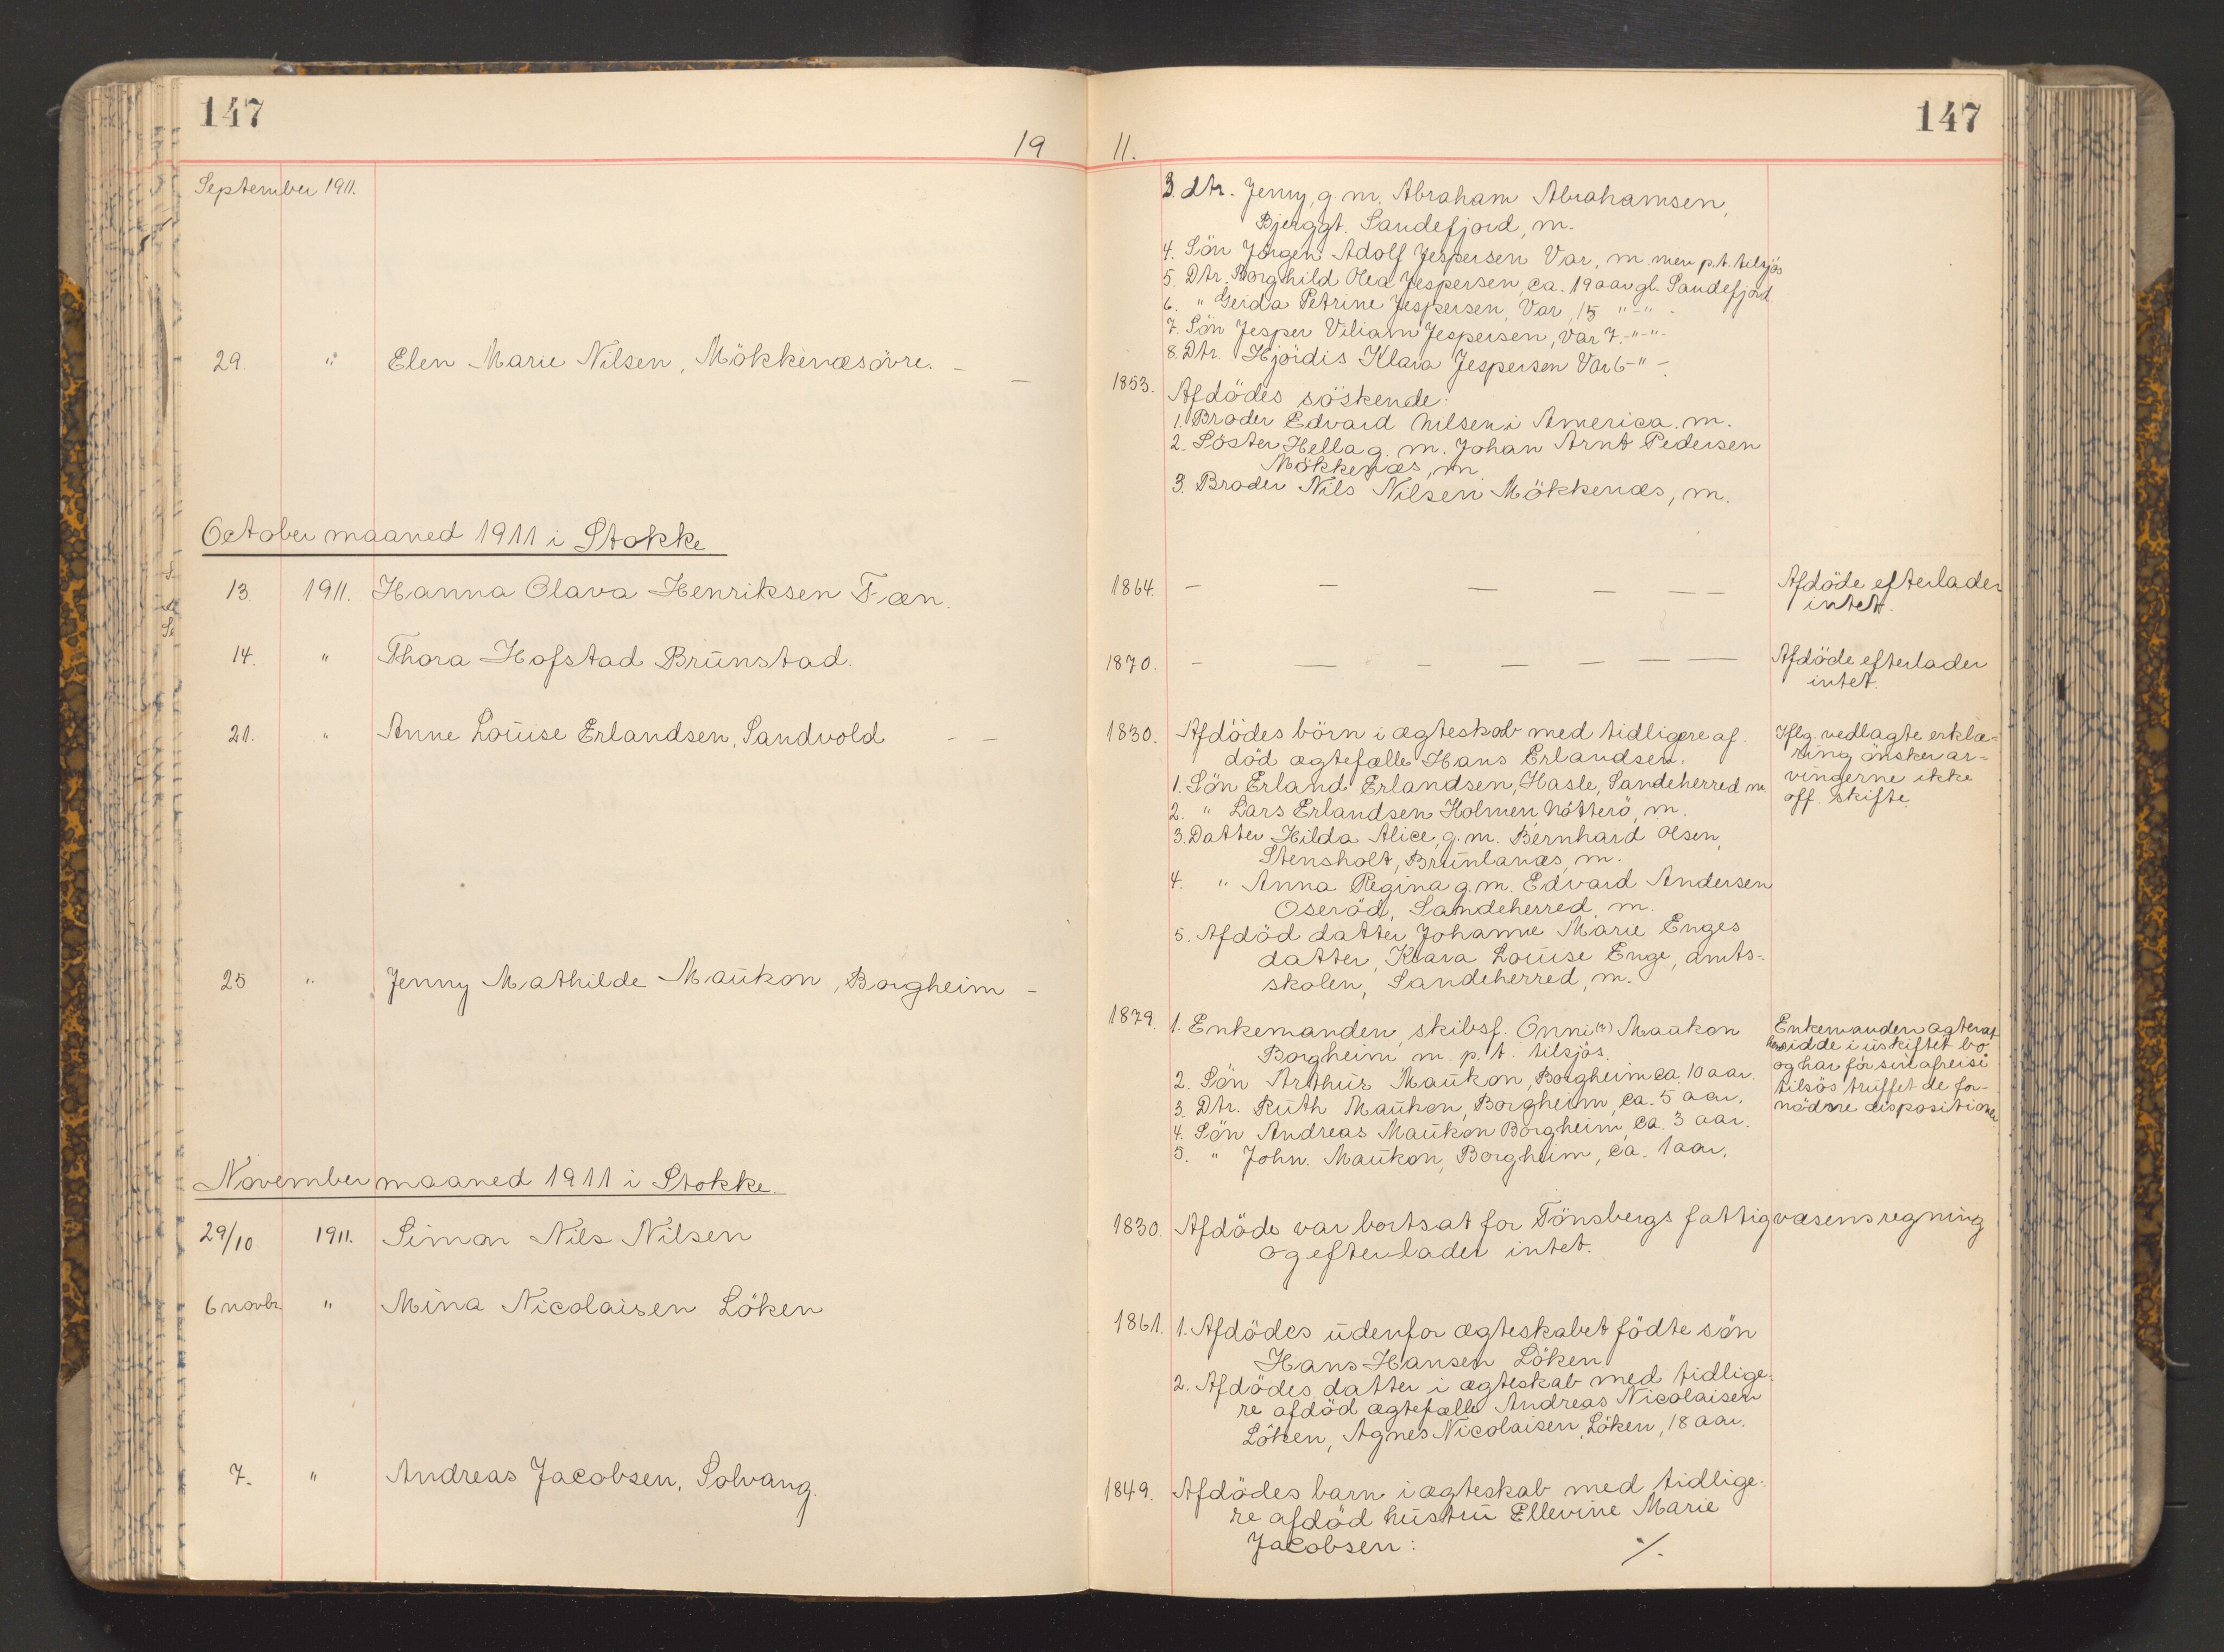 147
19
September 1911.
29. " Elen Marie Nilsen, Mökkenæs övre. - -
October maaned 1911 i Stokke
13. 1911. Hanna Olava Henriksen Fæn.
14. " Thora Hofstad Brunstad.
21. " Anne Louise Erlandsen, Sandvold - -
25 " Jenny Mathilde Maukon, Borgheim -
November maaned 1911 i Stokke.
29/10 1911. Simon Nils Nilsen
6 novbr. " Mina Nicolaisen Löken
7. " Andreas Jacobsen, Solvang.
147
11.
3. dtr. Jenny, g. m. Abraham Abrahamsen,
Bjerggt. Sandefjord, m.
4. Sön Jörgen Adolf Jespersen Vær, m. men p.t. tilsjös
5. Dtr. Borghild Olea Jespersen, ca. 19 aar gl. Sandefjord
6. " Gerda Petrine Jespersen, Vær, 15 "-"-
7. Sön Jesper Viliam Jespersen, Vær 7.-"-"-
8. Dtr. Hjördis Klara Jespersen Vær 6-"-
1853. Afdödes söskende:
1. Broder Edvard Nilsen i America. m.
2. Söster Hella g. m. Johan Arnt Pedersen
Mökkenæs, m
3. Broder Nils Nilsen Mökkenæs, m.
1864. - - - - - - Afdöde efterlader
intet.
1870. - - - - - - - Afdöde efterlader
intet.
1830. Afdödes börn i ægteskab med tidligere af-
död ægtefælle Hans Erlandsen.
1. Sön Erland Erlandsen, Hasle, Sandeherred m.
2. " Lars Erlandsen Holmen Nötterö, m.
3. Datter Hilda Alice, g. m. Bernhard Olsen,
Stensholt, Brunlanæs, m.
4. " Anna Regina g. m. Edvard Andersen
Oseröd, Sandeherred, m.
5. Afdöd datter Johanne Marie Enges
datter, Klara Louise Enge, amts-
skolen, Sandeherred, m.
Iflg. vedlagte erklæ-
ring önsker ar-
vingerne ikke
off. skifte.
1879. 1. Enkemanden, skibsf. Onni (?) Maukon
Borgheim m. p. t. tilsjös.
2. Sön Arthur Maukon, Borgheim ca. 10 aar.
3. Dtr. Ruth Maukon, Borgheim, ca. 5 aar.
4. Sön Andreas Maukon Borgheim, ca. 3 aar.
5. " John. Maukon, Borgheim, ca. 1 aar.
Enkemanden agter at
hensidde i uskiftet bo
og har för sin afreise
tilsös truffet de for-
nödne dispositioner
1830. Afdöde var bortsat for Tönsbergs fattigvæsens regning
og efterlader intet.
1861. 1. Afdödes udenfor ægteskabet födte sön
Hans Hansen Löken
2. Afdödes datter i ægteskab med tidlige-
re afdöd ægtefælle Andreas Nicolaisen
Löken, Agnes Nicolaisen, Löken, 18 aar.
1849. Afdödes barn i ægteskab med tidlige-
re afdöd hustru Ellevine Marie
Jacobsen: ./.